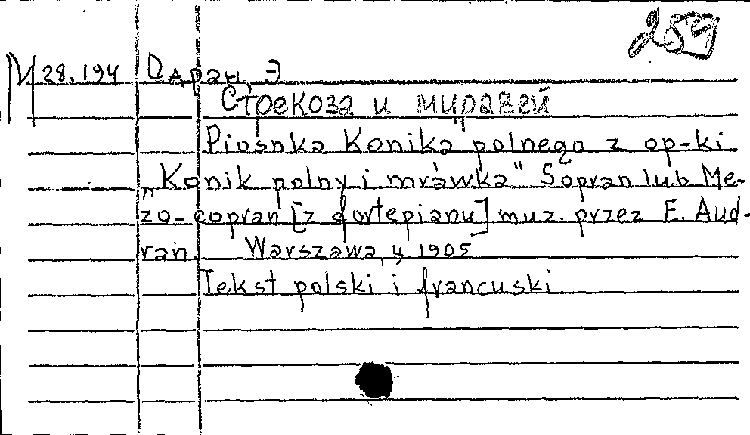 259
М 28.194 Одран, Э
Стрекоза и муравей
Piosnka Konika polnego z op-ki
„Konik polny i mrówka" Sopran lub Me-
zo-copran [z fortepianu] muz. przez E. Aud-
ran. Warszawa, 1905
Tekst polski i francuski